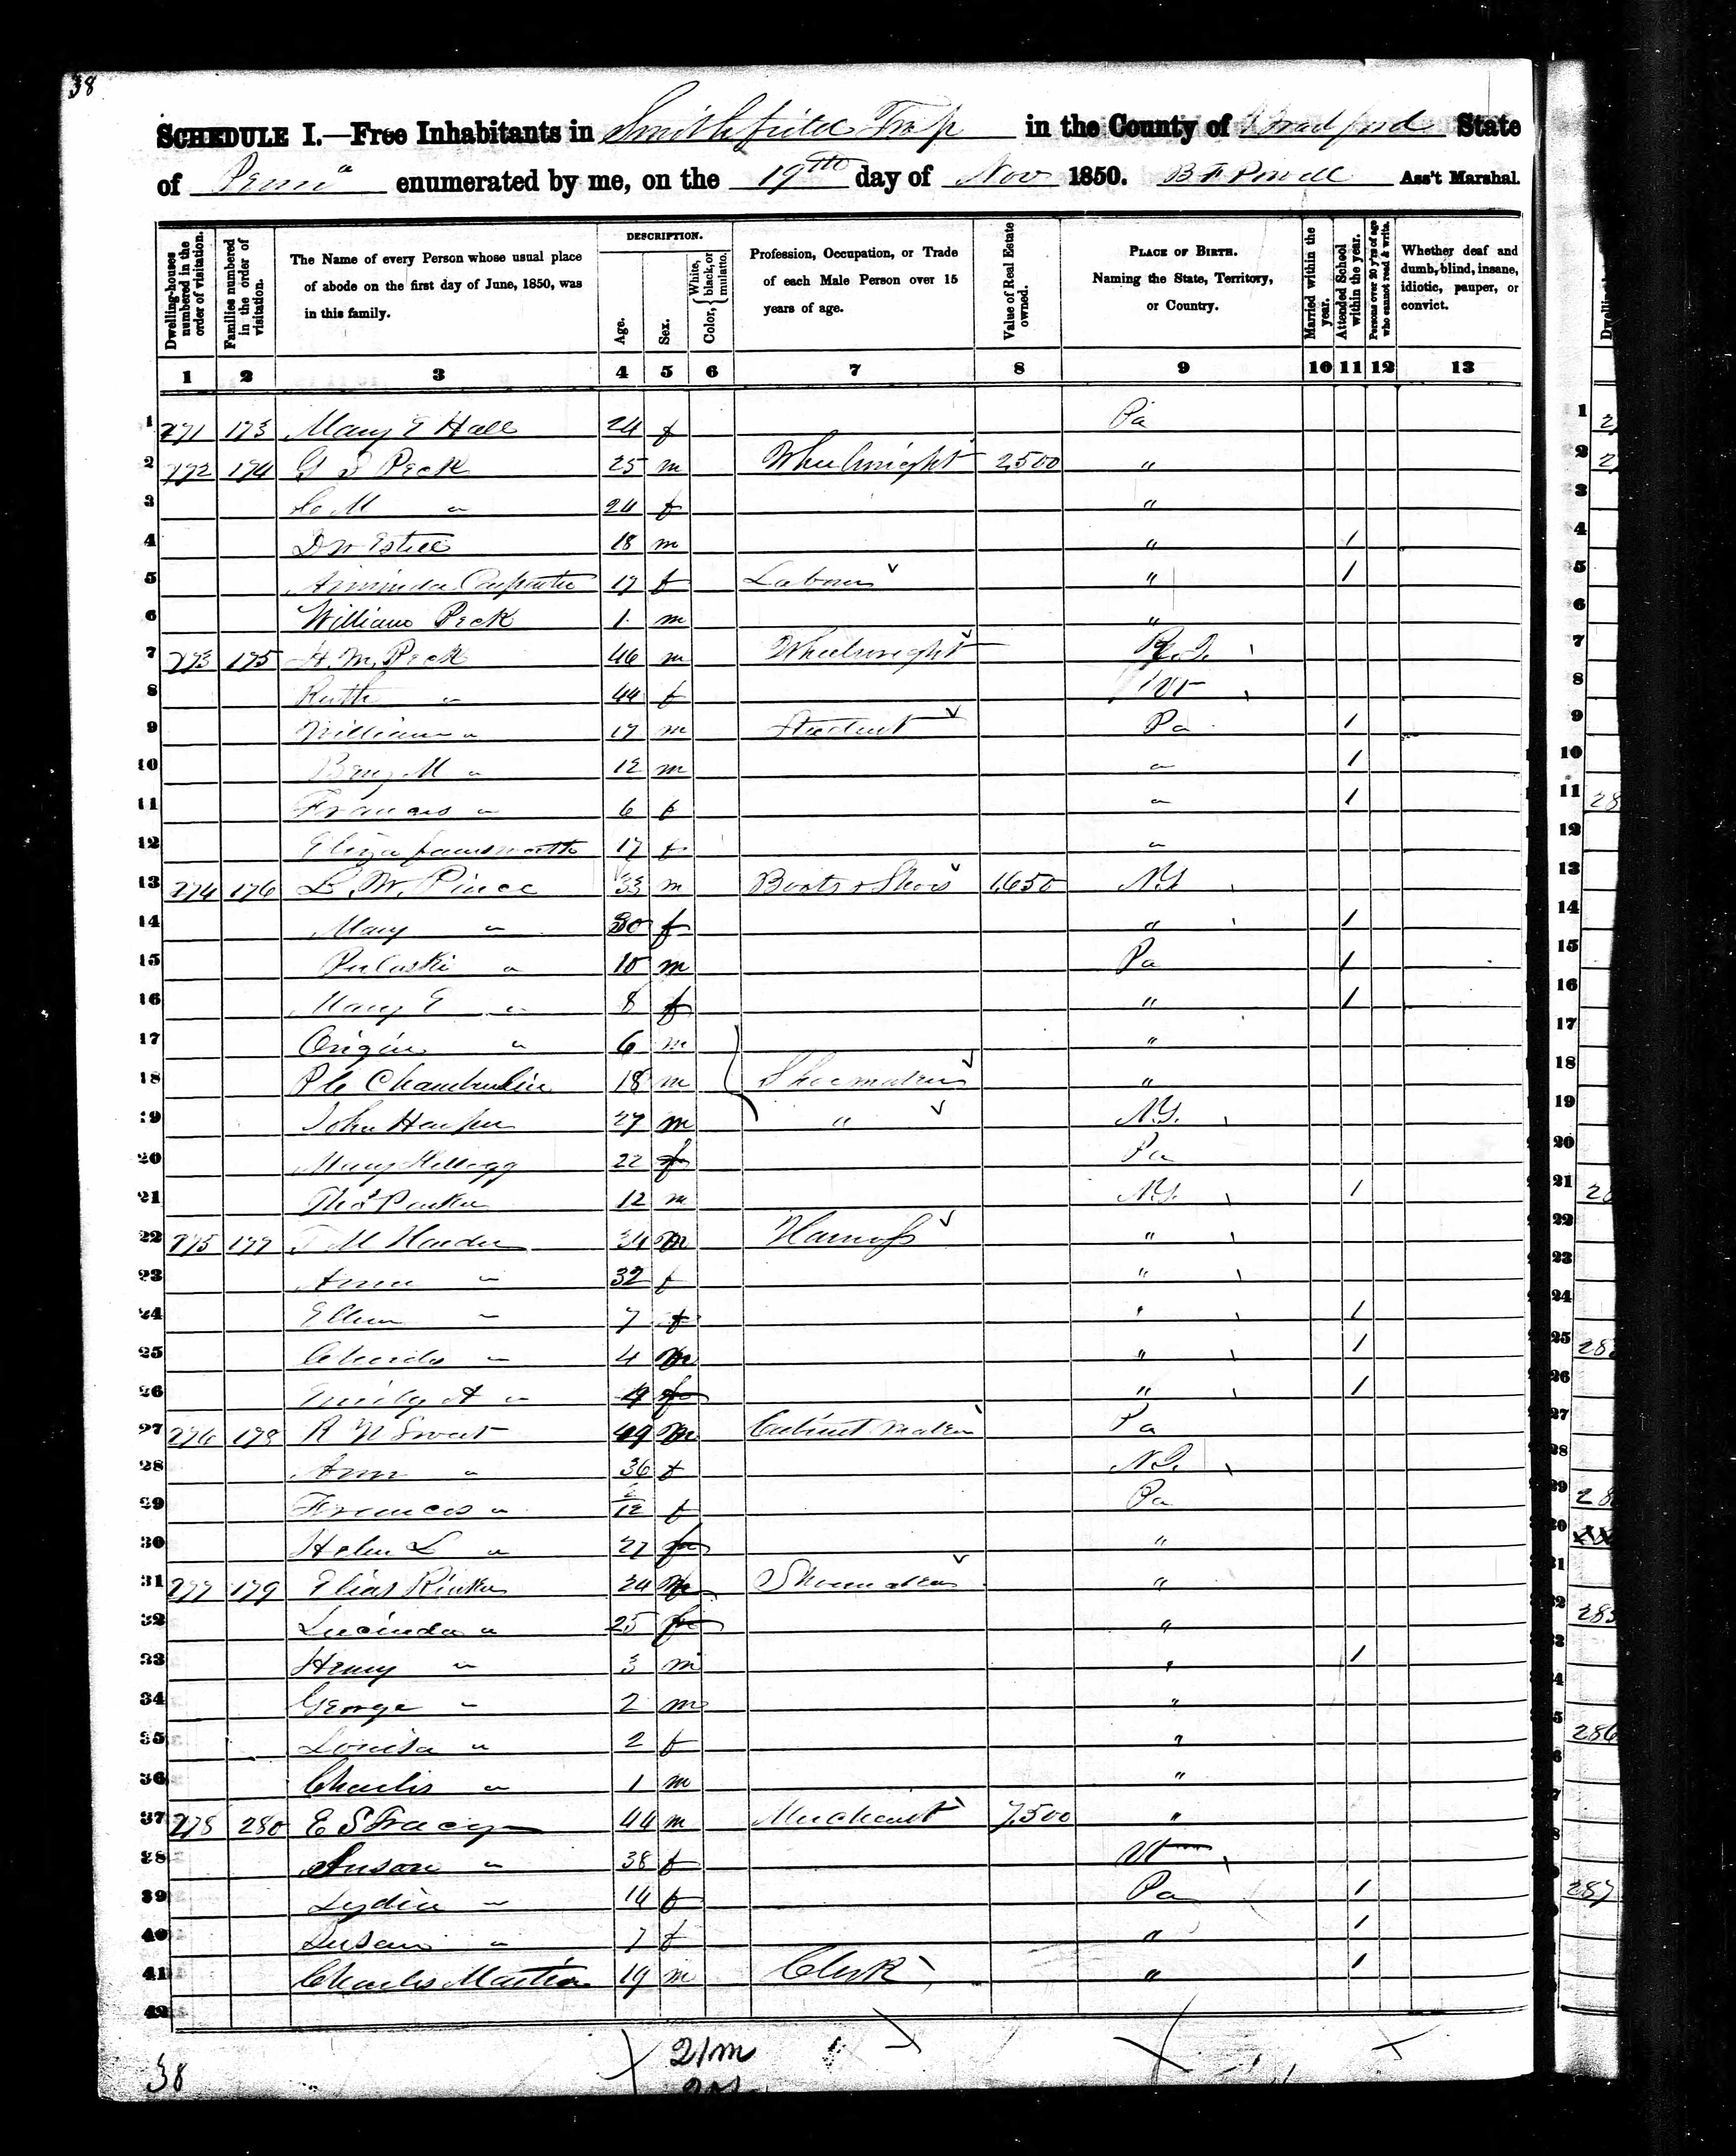 38
SCHEDULE I.—Free Inhabitants in Smithfield Twp in the County of Bradford State
of Penn a enumerated by me, on the 19th day of Nov 1850. B F Powell Ass't Marshal.
Dwelling-houses numbered in the order of visitation.
Families numbered in the order of visitation.
The Name of every Person whose usual place of abode on the first day of June, 1850, was in this family.
DESCRIPTION.
Age.
Sex.
Color, { White, black, or mulatto.
Profession, Occupation, or Trade of each Male Person over 15 years of age.
Value of Real Estate owned.
PLACE OF BIRTH. Naming the State, Territory, or Country.
Married within the year.
Attended School within the year.
Persons over 20 y'rs of age who cannot read & write.
Whether deaf and dumb, blind, insane, idiotic, pauper, or convict.
1 2 3 4 5 6 7 8 9 10 11 12 13
1 271 173 Mary E Hall 24 f Pa
2 272 174 G S Peck 25 m Wheelwright 2,500 "
3 M " 24 f "
4 D W 18 m " 1
5 Carpenter 17 f Laborer " 1
6 William Peck 1 m "
7 273 175 H. M. Peck 46 m Wheelwright
8 Ruth " 44 f Vt
9 William " 17 m Student Pa 1
10 Benj M " 12 m " 1
11 Francis " 6 f " 1
12 Eliza 17 f "
13 274 176 L. W. Pierce 33 m Boots & Shoes 1,650 N.Y
14 Mary " 30 f " 1
15 Pulaski " 10 m Pa 1
16 Mary E " 8 f " 1
17 Origin " 6 m "
18 Chamberlin 18 m Shoemaker "
19 John Harper 27 m " N.Y.
20 Mary Kellogg 22 f Pa
21 Thos Parker 12 m N.Y. 1
22 275 177 M Harder 34 m Harness "
23 Ann " 32 f "
24 Ellen " 7 f " 1
25 Charles " 4 m " 1
26 Emily A " f " 1
27 276 178 R N 49 m Cabinet Maker Pa
28 Ann " 36 f
29 Frances " /12 f Pa
30 Helen L " 27 f "
31 277 179 Elias 24 m Shoemaker "
32 Lucinda " 25 f "
33 Henry " 3 m " 1
34 George " 2 m "
35 Louisa " 2 f "
36 Charles " 1 m "
37 278 280 E S Tracy 44 m Merchant 7,500 "
38 Susan " 38 f Vt
39 Lydia " 14 f Pa 1
40 Susan " 7 f " 1
41 Charles Martin 19 m Clerk " 1
42
21m
38